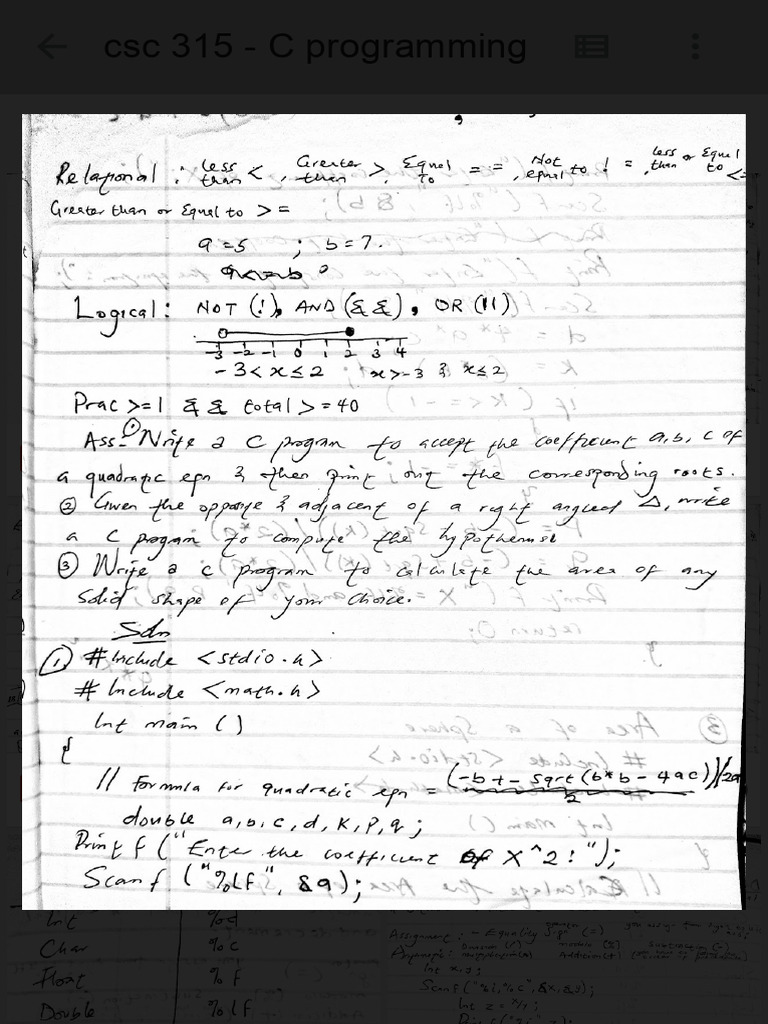 csc 315 - C programming
Relational : Less than < , Greater than > , Equal To = = , Not equal to ! = , less than or Equal to <=
Greater than or Equal to >=
a = 5 ; b = 7.
a<=b
Logical : NOT (!), AND (&&), OR (||)
-3 -2 -1 0 1 2 3 4
-3 < x ≤ 2 x > -3 & x ≤ 2
Prac >= 1 && total >= 40
Ass- ① Write a C program to accept the coefficient a, b, c of
a quadratic eqn & then print out the corresponding roots.
② Given the opposite & adjacent of a right angled Δ, write
a C program to compute the hypothenuse
③ Write a C program to calculate the area of any
solid shape of your choice.
Soln
① # Include <stdio.h>
# Include <math.h>
Int main ()
{
// Formula for quadratic eqn = (-b +- sqrt (b*b - 4ac))/2a
2
double a, b, c, d, k, p, q;
Print f ("Enter the coefficient of X^2 : ");
Scanf ("%lf", &a);
Int %d
Char %c
Float %f
Double %lf
Int x, y;